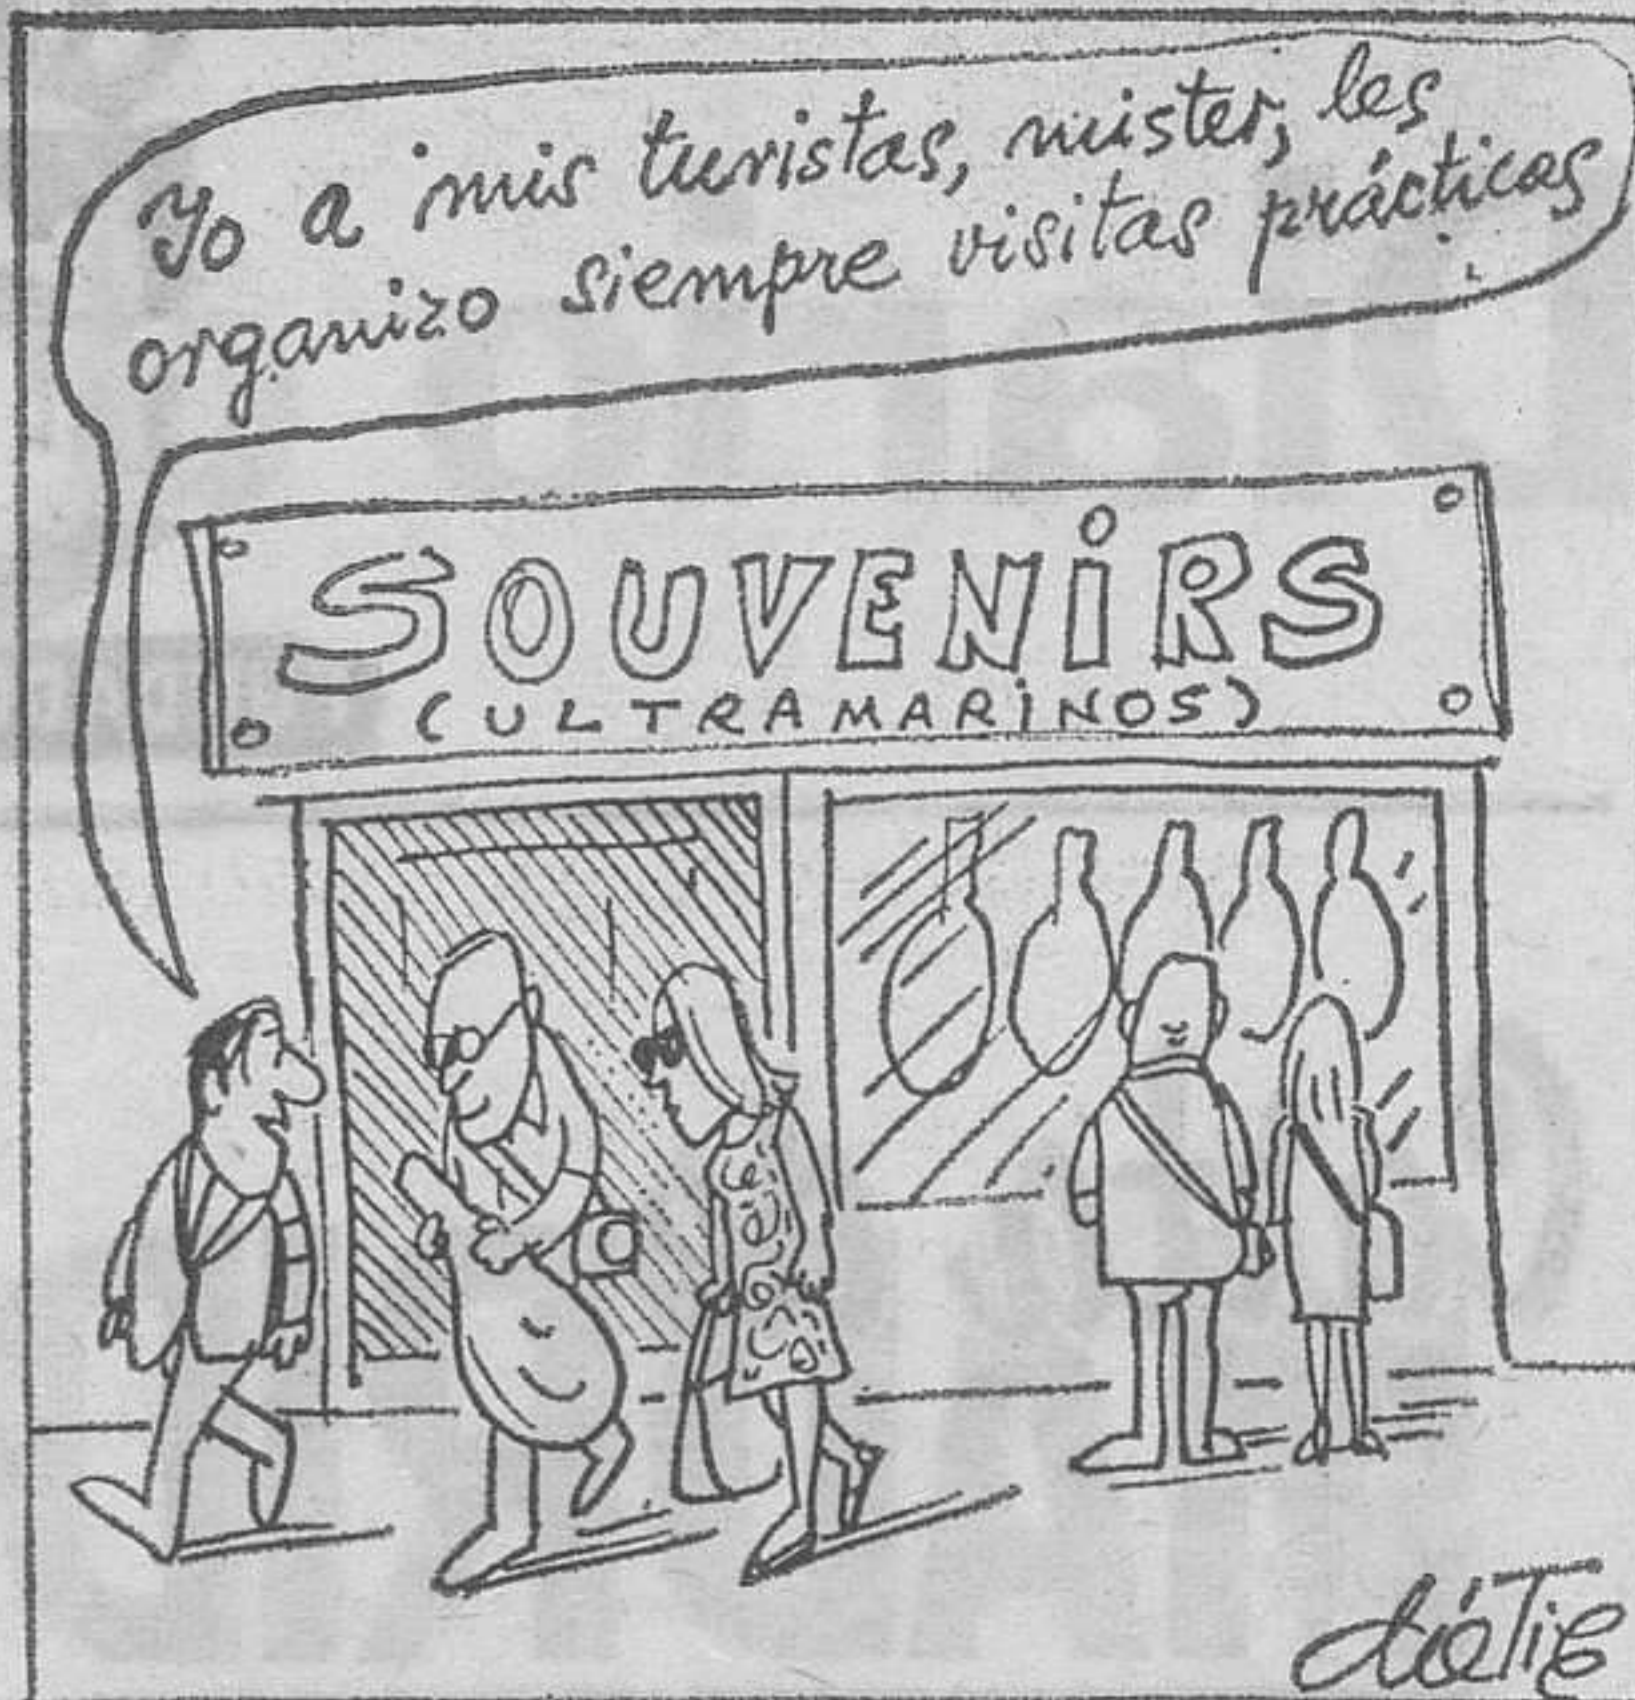 Yo a mis turistas, mister, les
organizo siempre visitas prácticas
SOUVENIRS
(ULTRAMARINOS)